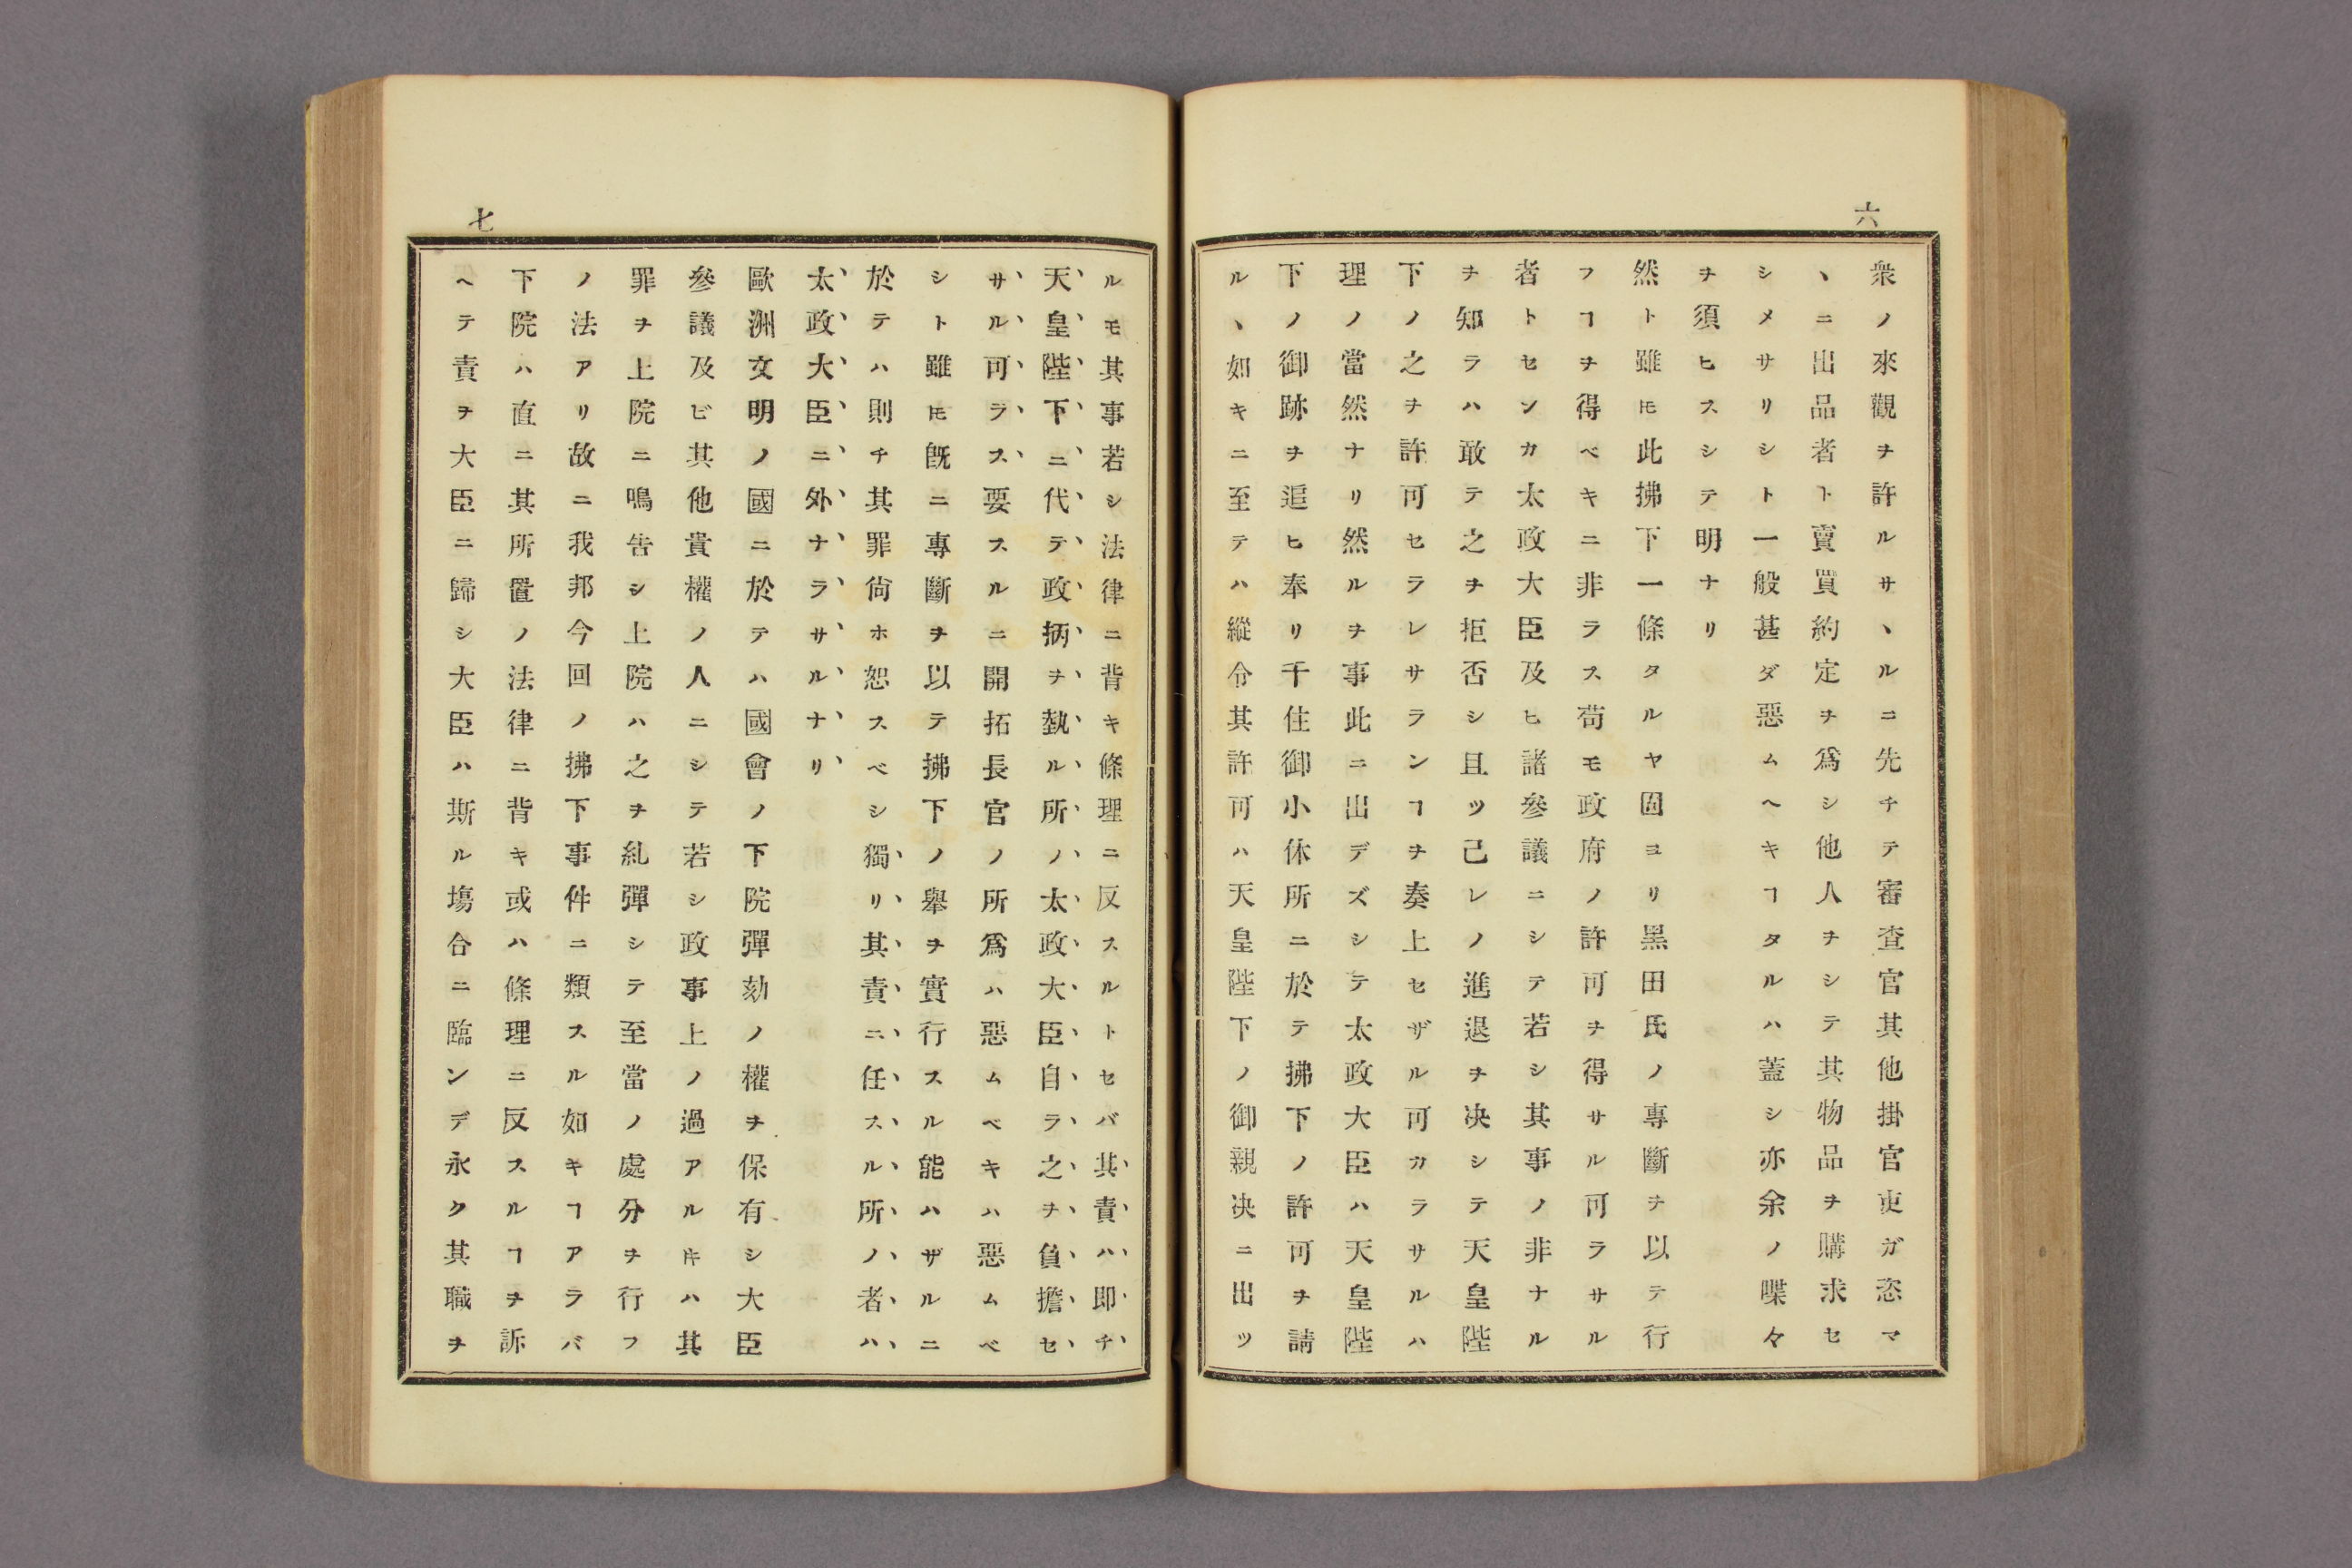 六
衆ノ來觀ヲ許ルサヽルニ先チテ審査官其他掛官吏ガ恣マ
ヽニ出品者ト賣買約定ヲ爲シ他人ヲシテ其物品ヲ購求セ
シメサリシト一般甚ダ惡ムヘキヿタルハ蓋シ亦余ノ喋々
ヲ須ヒスシテ明ナリ
然ト雖𪜈此拂下一條タルヤ固ヨリ黑田氏ノ專斷ヲ以テ行
フヿヲ得ベキニ非ラス苟モ政府ノ許可ヲ得サル可ラサル
者トセンカ太政大臣及ヒ諸參議ニシテ若シ其事ノ非ナル
ヲ知ラハ敢テ之ヲ拒否シ且ツ己レノ進退ヲ决シテ天皇陛
下ノ之ヲ許可セラレサランヿヲ奏上セザル可カラサルハ
理ノ當然ナリ然ルヲ事此ニ出デズシテ太政大臣ハ天皇陛
下ノ御跡ヲ追ヒ奉リ千住御小休所ニ於テ拂下ノ許可ヲ請
ルヽ如キニ至テハ縱令其許可ハ天皇陛下ノ御親决ニ出ツ
七
ルモ其事若シ法律ニ背キ條理ニ反スルトセバ其責ハ即チ
天皇陛下ニ代テ政柄ヲ執ル所ノ太政大臣自ラ之ヲ負擔セ
サル可ラス要スルニ開拓長官ノ所爲ハ惡ムベキハ惡ムベ
シト雖𪜈旣ニ專斷ヲ以テ拂下ノ擧ヲ實行スル能ハザルニ
於テハ則チ其罪尙ホ恕スベシ獨リ其責ニ任スル所ノ者ハ
太政大臣ニ外ナラサルナリ
歐洲文明ノ國ニ於テハ國會ノ下院彈劾ノ權ヲ保有シ大臣
參議及ビ其他貴權ノ人ニシテ若シ政事上ノ過アルキハ其
罪ヲ上院ニ鳴告シ上院ハ之ヲ糺彈シテ至當ノ處分ヲ行フ
ノ法アリ故ニ我邦今回ノ拂下事件ニ類スル如キヿアラバ
下院ハ直ニ其所置ノ法律ニ背キ或ハ條理ニ反スルヿヲ訴
ヘテ責ヲ大臣ニ歸シ大臣ハ斯ル塲合ニ臨ンデ永ク其職ヲ